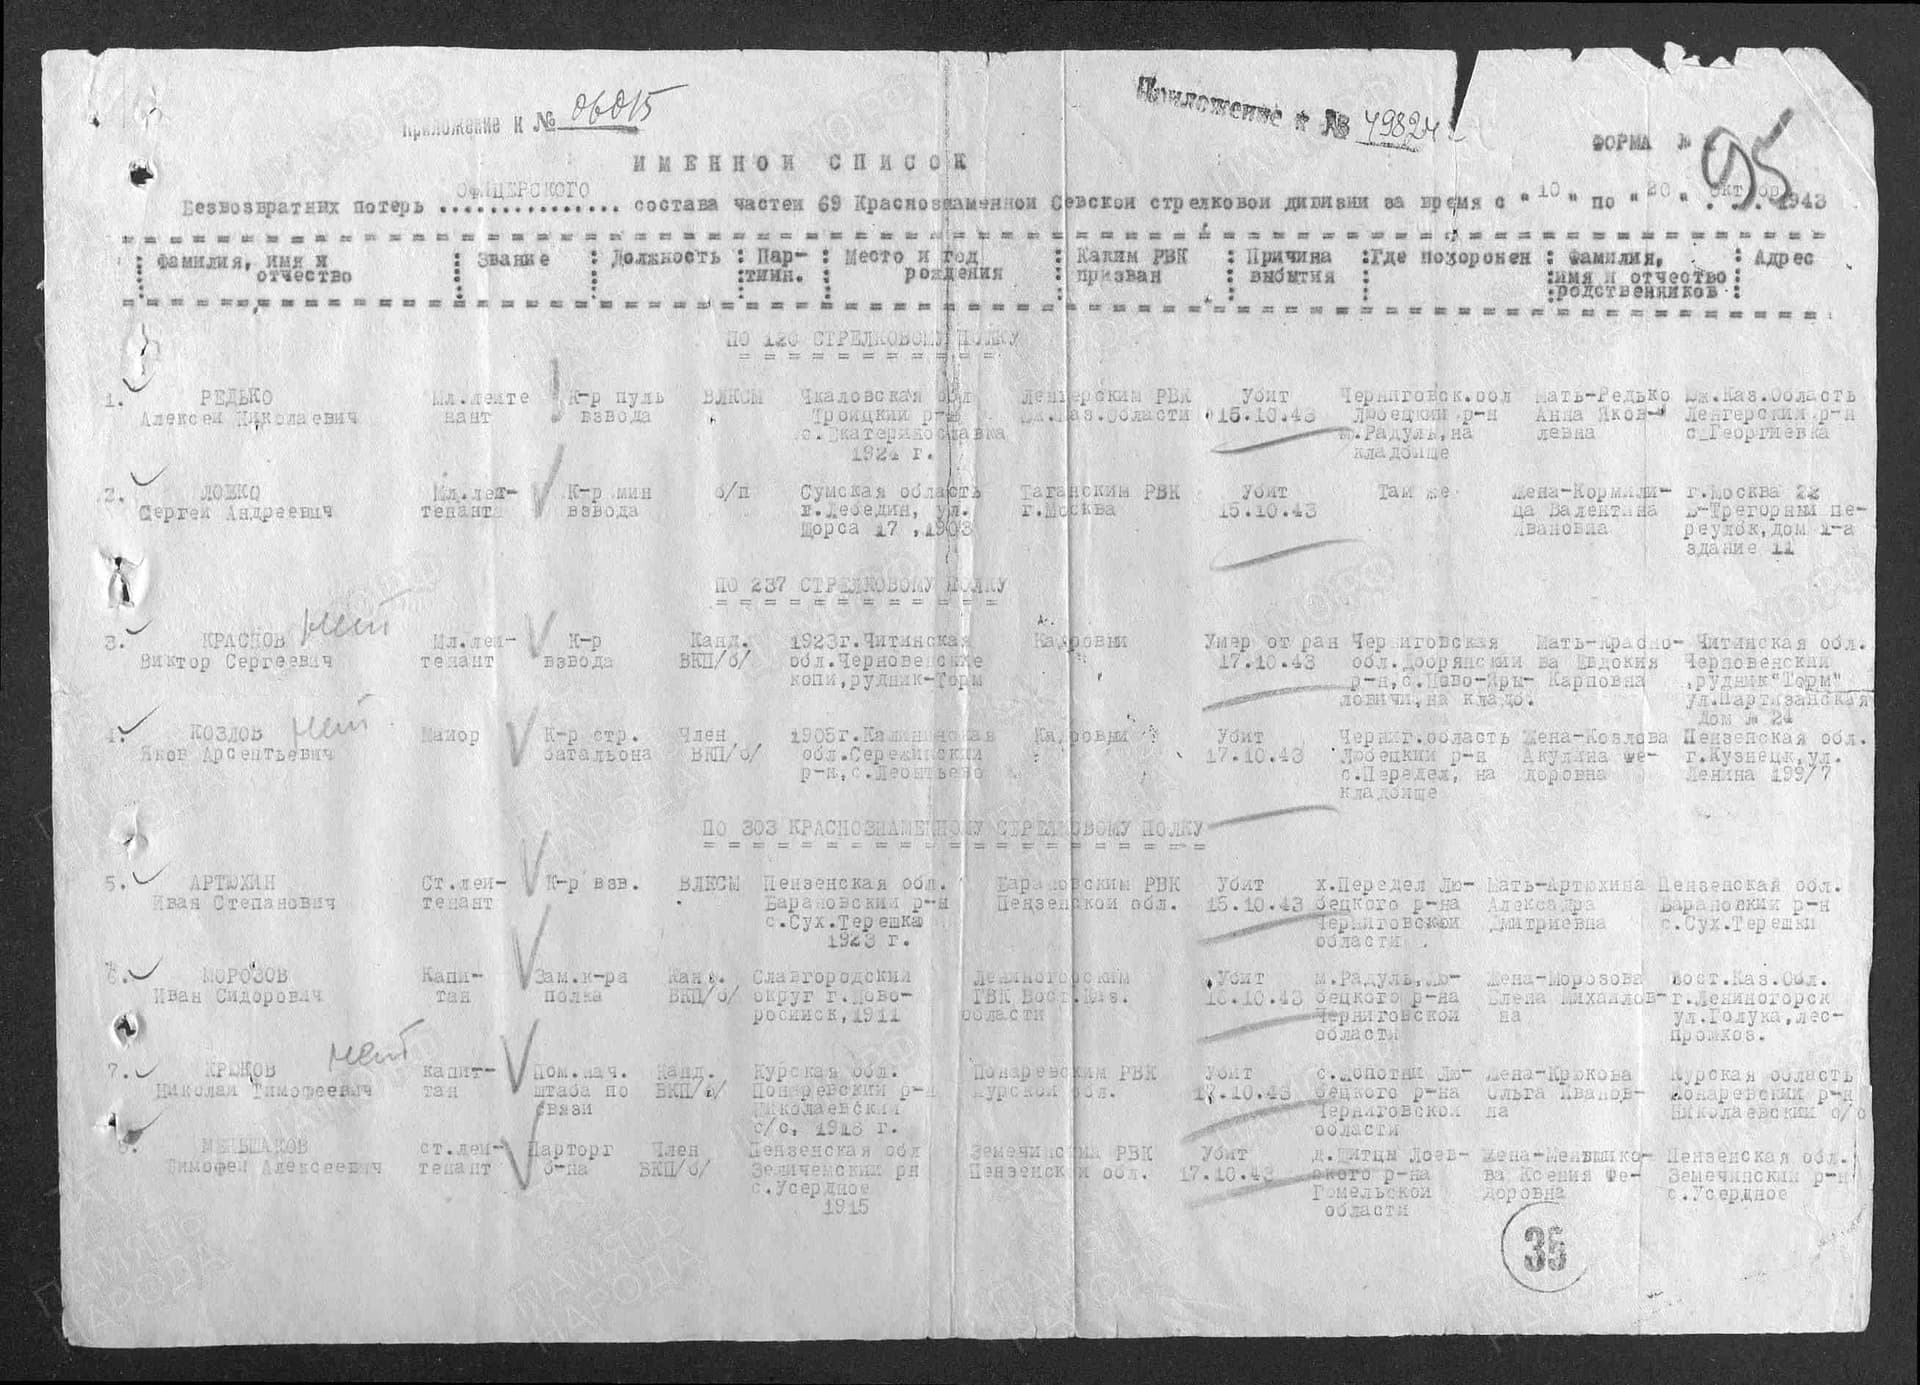 Приложение к № 06015
Приложение к № 49824с
ФОРМА №
95
ИМЕННОЙ СПИСОК
ОФИЦЕРСКОГО
Безвозвратных потерь ............... состава частей 69 Краснознаменной Севской стрелковой дивизии за время с "10" по "20" октября 1943
Фамилия, имя и отчество : Звание : Должность : Пар-тийн. : Место и год рождения : Каким РВК призван : Причина выбытия : Где похоронен : Фамилия, имя и отчество родственников : Адрес
ПО 120 СТРЕЛКОВОМУ ПОЛКУ
1. РЕДЬКО Мл.лейте К-р пуль ВЛКСМ Чкаловская обл Ленгерским РВК Убит Черниговск.обл Мать-Редько Юж.Каз.Область
Алексей Николаевич нант взвода Троицкий р-н Юж.Каз.Области 15.10.43 Любецкий р-н Анна Яков- Ленгерским р-н
с.Екатеринославка м.Радуль,на левна с Георгиевка
1924 г. кладбище
2. ЛОШКО Мл.лей- К-р мин б/п Сумская область Таганским РВК Убит Там же Жена-Кормили- г.Москва 22
Сергей Андреевич тенанта взвода г.Лебедин, ул. г.Москва 15.10.43 ца Валентина Б-Трегорный пе-
Щорса 17 ,1903 Ивановна реулок,дом 1-а
здание 11
ПО 237 СТРЕЛКОВОМУ ПОЛКУ
3. КРАСНОВ нет Мл.лей- К-р Канд. 1923г.Читинская Кадровый Умер от ран Черниговская Мать-Красно- Читинская обл.
Виктор Сергеевич тенант взвода ВКП/б/ обл.Черновенские 17.10.43 обл.Добрянский ва Евдокия Черновенский
копи,рудник-Торм р-н,с.Ново-Яры- Карповна ,рудник"Торм"
ловичи,на кладб. ул.Партизанская
Дом № 24
4. КОЗЛОВ нет Майор К-р стр. Член 1905г.Калининская Кадровый Убит Черниг.область Жена-Козлова Пензенская обл.
Яков Арсентьевич батальона ВКП/б/ обл.Сережинский 17.10.43 Любецкий р-н Акулина Фе- г.Кузнецк,ул.
р-н,с.Леонтьево с.Передел, на доровна Ленина 199/7
кладбище
ПО 303 КРАСНОЗНАМЕННОМУ СТРЕЛКОВОМУ ПОЛКУ
5. АРТЮХИН Ст.лей- К-р взв. ВЛКСМ Пензенская обл. Барановским РВК Убит х.Передел Лю- Мать-Артюхина Пензенская обл.
Иван Степанович тенант Барановский р-н Пензенской обл. 15.10.43 бецкого р-на Александра Барановский р-н
с.Сух.Терешка Черниговской Дмитриевна с.Сух.Терешки
1923 г. области
6. МОРОЗОВ Капи- Зам.к-ра Канд. Славгородский Лениногорским Убит м.Радуль,Лю- Жена-Морозова Вост.Каз.Обл.
Иван Сидорович тан полка ВКП/б/ округ г.Ново- ГВК Вост.Каз. 16.10.43 бецкого р-на Елена Михайлов- г.Лениногорск
росийск,1911 области Черниговской на ул.Голука,лес-
области промхоз.
7. КРЮКОВ нет капит- Пом.нач. Канд. Курская обл. Понаревским РВК Убит с.Лопотни Лю- Жена-Крюкова Курская область
Николай Тимофеевич тан штаба по ВКП/б/ Понаревский р-н Курской обл. 17.10.43 бецкого р-на Ольга Иванов- Понаревский р-н
связи Николаевский Черниговской на Николаевский с/с
с/с, 1918 г. области
8. МЕНЬШАКОВ ст.лей- Парторг Член Пензенская обл Земечинским РВК Убит д.Щитцы Лоев- Жена-Меньшико- Пензенская обл.
Тимофей Алексеевич тенант б-на ВКП/б/ Земичемский рн Пензенской обл. 17.10.43 ского р-на ва Ксения Фе- Земечинский р-н
с.Усердное Гомельской доровна с.Усердное
1915 области
35